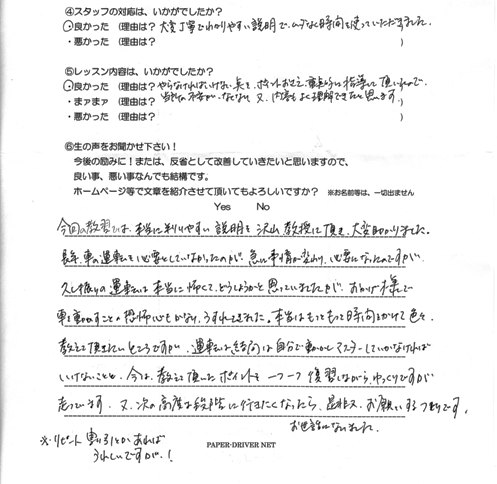 ④スタッフの対応は、いかがでしたか？
・良かった （理由は？ 大変丁寧でわかりやすい説明で、ムダなく時間を使っていただきました。
・悪かった （理由は？ ）
⑤レッスン内容は、いかがでしたか？
・良かった （理由は？ やらなければいけない点を、ポイントおさえ、重点的に指導して頂いたので、
・まァまァ （理由は？ 不安がなくなり、又、内容もよく理解できたと思います。
・悪かった （理由は？ ）
⑥生の声をお聞かせ下さい！
今後の励みに！または、反省として改善していきたいと思いますので、
良い事、悪い事なんでも結構です。
ホームページ等で文章を紹介させて頂いてもよろしいですか？ ※お名前等は、一切出ません
Yes No
今回の教習では、本当に判りやすい説明を沢山教授して頂き、大変助かりました。
長年、車の運転を必要としていなかったのですが、急に事情が変わり、必要になったのですが、
久し振りの運転は本当に怖くて、どうしようかと思っていましたが、おかげ様で
車を動かすことの恐怖心もかなりうすれてきました。本当はもっともっと時間をかけて色々
教えて頂きたいところですが、運転は結局は自分で動かしマスターしていかなければ
いけないことと、今は、教えて頂いたポイントを一つ一つ復習しながら、ゆっくりですが
走っています。又、次の高度な段階に行きたくなったら、是非又、お願いするつもりです。
お世話になりました。
※リピート割引とかあれば
うれしいですが。！
PAPER-DRIVER NET